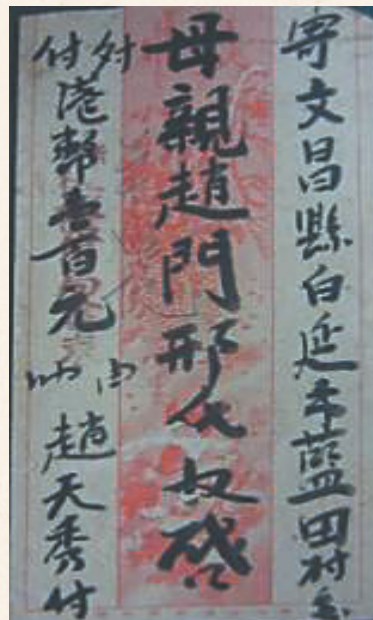 寄文昌縣白延市藍田村交
母親趙門邢氏收啓
外付港幣壹百元
內 趙天秀付